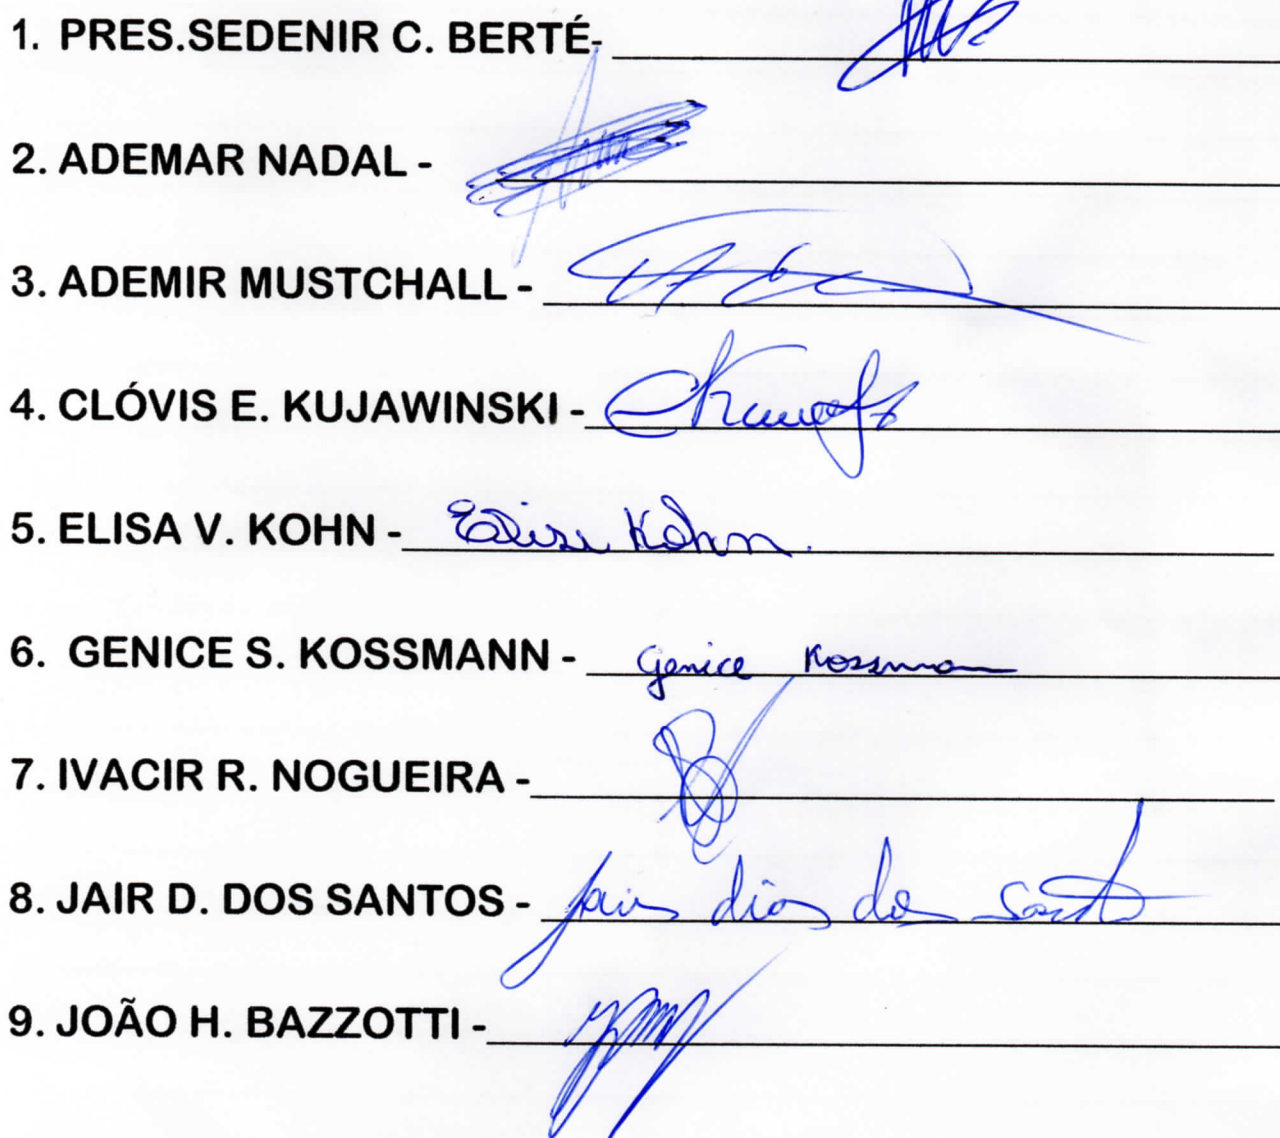 1. PRES.SEDENIR C. BERTÉ-
2. ADEMAR NADAL -
3. ADEMIR MUSTCHALL -
4. CLÓVIS E. KUJAWINSKI -
5. ELISA V. KOHN - Elisa Kohn.
6. GENICE S. KOSSMANN - Genice Kossmann
7. IVACIR R. NOGUEIRA -
8. JAIR D. DOS SANTOS - Jair dias dos Santos
9. JOÃO H. BAZZOTTI -